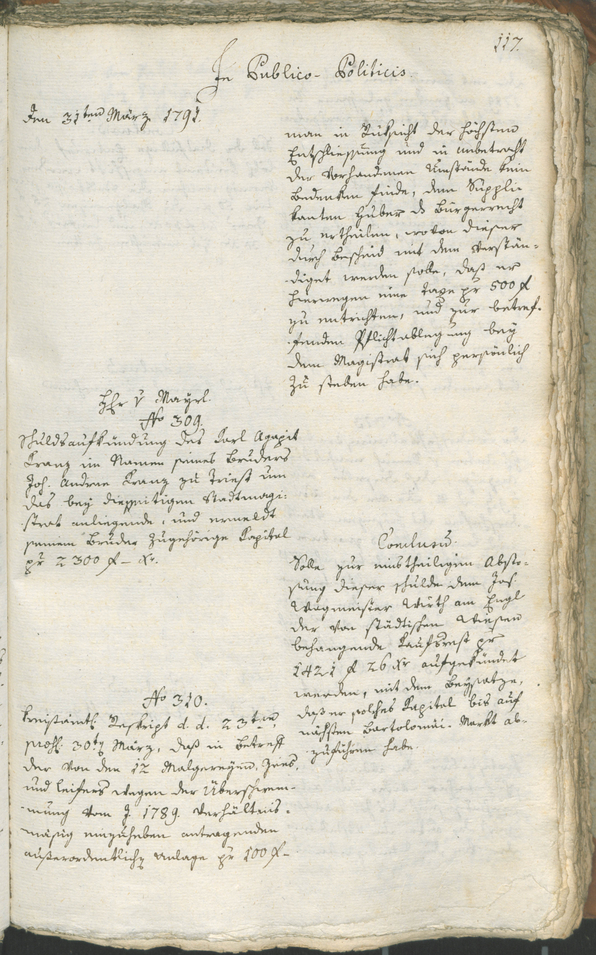 117.
In Publico-Politicis.
Den 31ten März 1791.
man in Rüksicht der höchsten
Entschliessung und in anbetracht
der vorhandenen Umstände kein
bedenken finde, dem Suppli-
kanten Huber ds Bürgerrecht
zu ertheilen, wovon dieser
durch bescheid mit dem verstän-
diget werden solle, daß er
hierwegen eine Taxe pr 500 f
zu entrichten, und zur betref-
fenden Pflichtablegung bey
dem Magistrat sich persönlich
zu stellen habe.
Hr v Mayrl
No 309.
Schuldsaufkündung des Karl Agapit
Kranz im Namen seines Bruders
Joh. Andrae Kranz zu Triest um
das bey diesseitigem Stadtmagi-
strat anliegende, und ermeldt
seinem Bruder zugehörige Kapital
pr 2300 f – Xr.
Conclusum.
Solle zur eintheiligen Absto-
sung dieser schulde dem Jos
Wagmeister Wirth am Engl
der von städtischen Wiesen
behangende Kaufrest pr
1421 f 26 Xr aufgekündet
werden, mit dem Beysatze,
daß er solches Kapital bis auf
nächsten Bartolomäi-Markt ab-
zuführen habe.
No 310.
Kreisamts Reskript d. d. 23ten
praes. 30t März, daß in betreff
der von den 12 Malgereyen, Zwös.
und Leifers wegen der Überschwem-
mung vom J. 1789. verhältnis-
mäsig einzuheben antragenden
außerordentlich anlage pr 100 f –